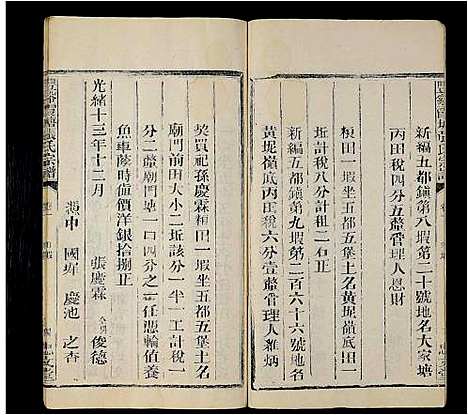 新編五都鎮第八瑕第二十號地名大家塘
丙田稅四分五釐管理人恩財
稉田一瑕坐五都五堡土名黃坭嶺底田一
坵計稅八分計租二石正
新編五都鎮第九瑕第二百六十六號地名
黃坭嶺丙田稅六分壹釐管理人雅炳
契買祀孫慶霖稉田一瑕坐五都五堡土名
廟門前田大小二坵該分一半一工計稅一
分二釐廟門塘一口四分之二任憑輪值養
魚車蔭時值價洋銀拾捌正
光緒十三年十二月 張慶霖 俊德
憑中 國墀 慶池 之香
張氏宗譜